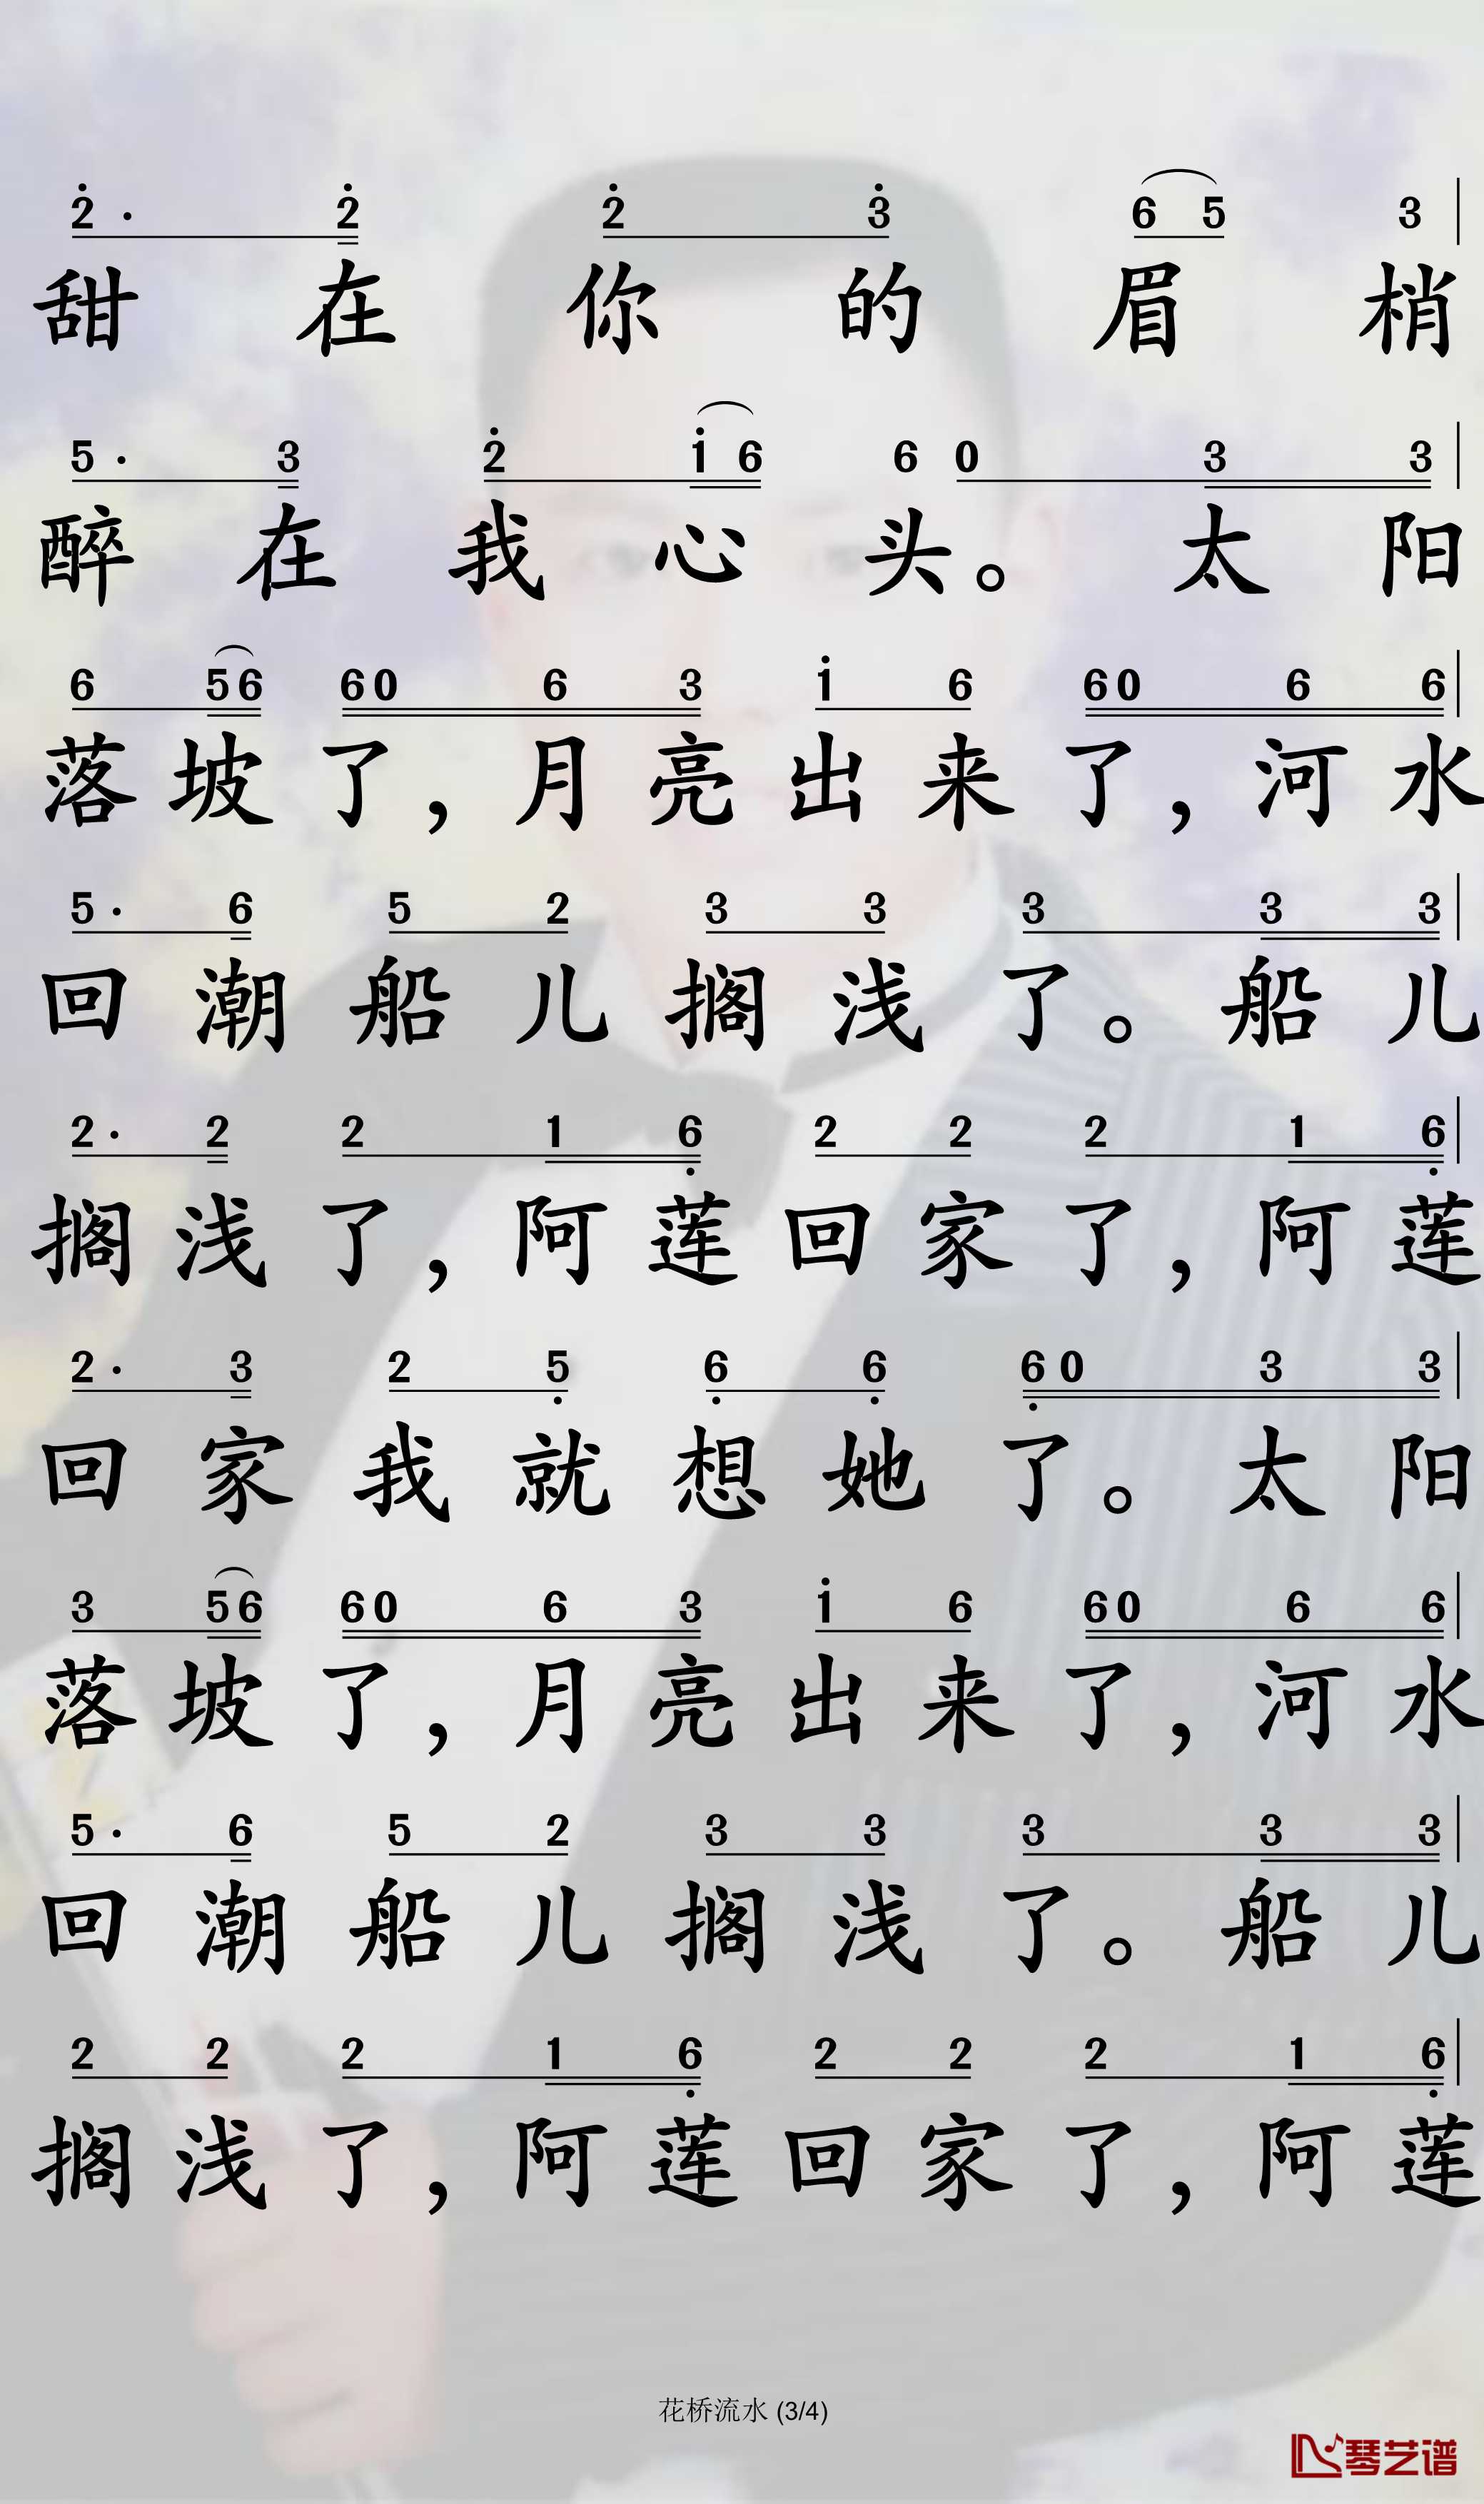 2̇· 2̇ 2̇ 3̇ 6 5 3
甜在你的眉梢
5· 3 2̇ 1̇ 6 6 0 3 3
醉在我心头。太阳
6 5 6 6 0 6 3 1̇ 6 6 0 6 6
落坡了，月亮出来了，河水
5· 6 5 2 3 3 3 3 3
回潮船儿搁浅了。船儿
2· 2 2 1 6̣ 2 2 2 1 6̣
搁浅了，阿莲回家了，阿莲
2· 3 2 5̣ 6̣ 6̣ 6̣ 0 3 3
回家我就想她了。太阳
3 5 6 6 0 6 3 1̇ 6 6 0 6 6
落坡了，月亮出来了，河水
5· 6 5 2 3 3 3 3 3
回潮船儿搁浅了。船儿
2 2 2 1 6̣ 2 2 2 1 6̣
搁浅了，阿莲回家了，阿莲
花桥流水 (3/4)
琴艺谱